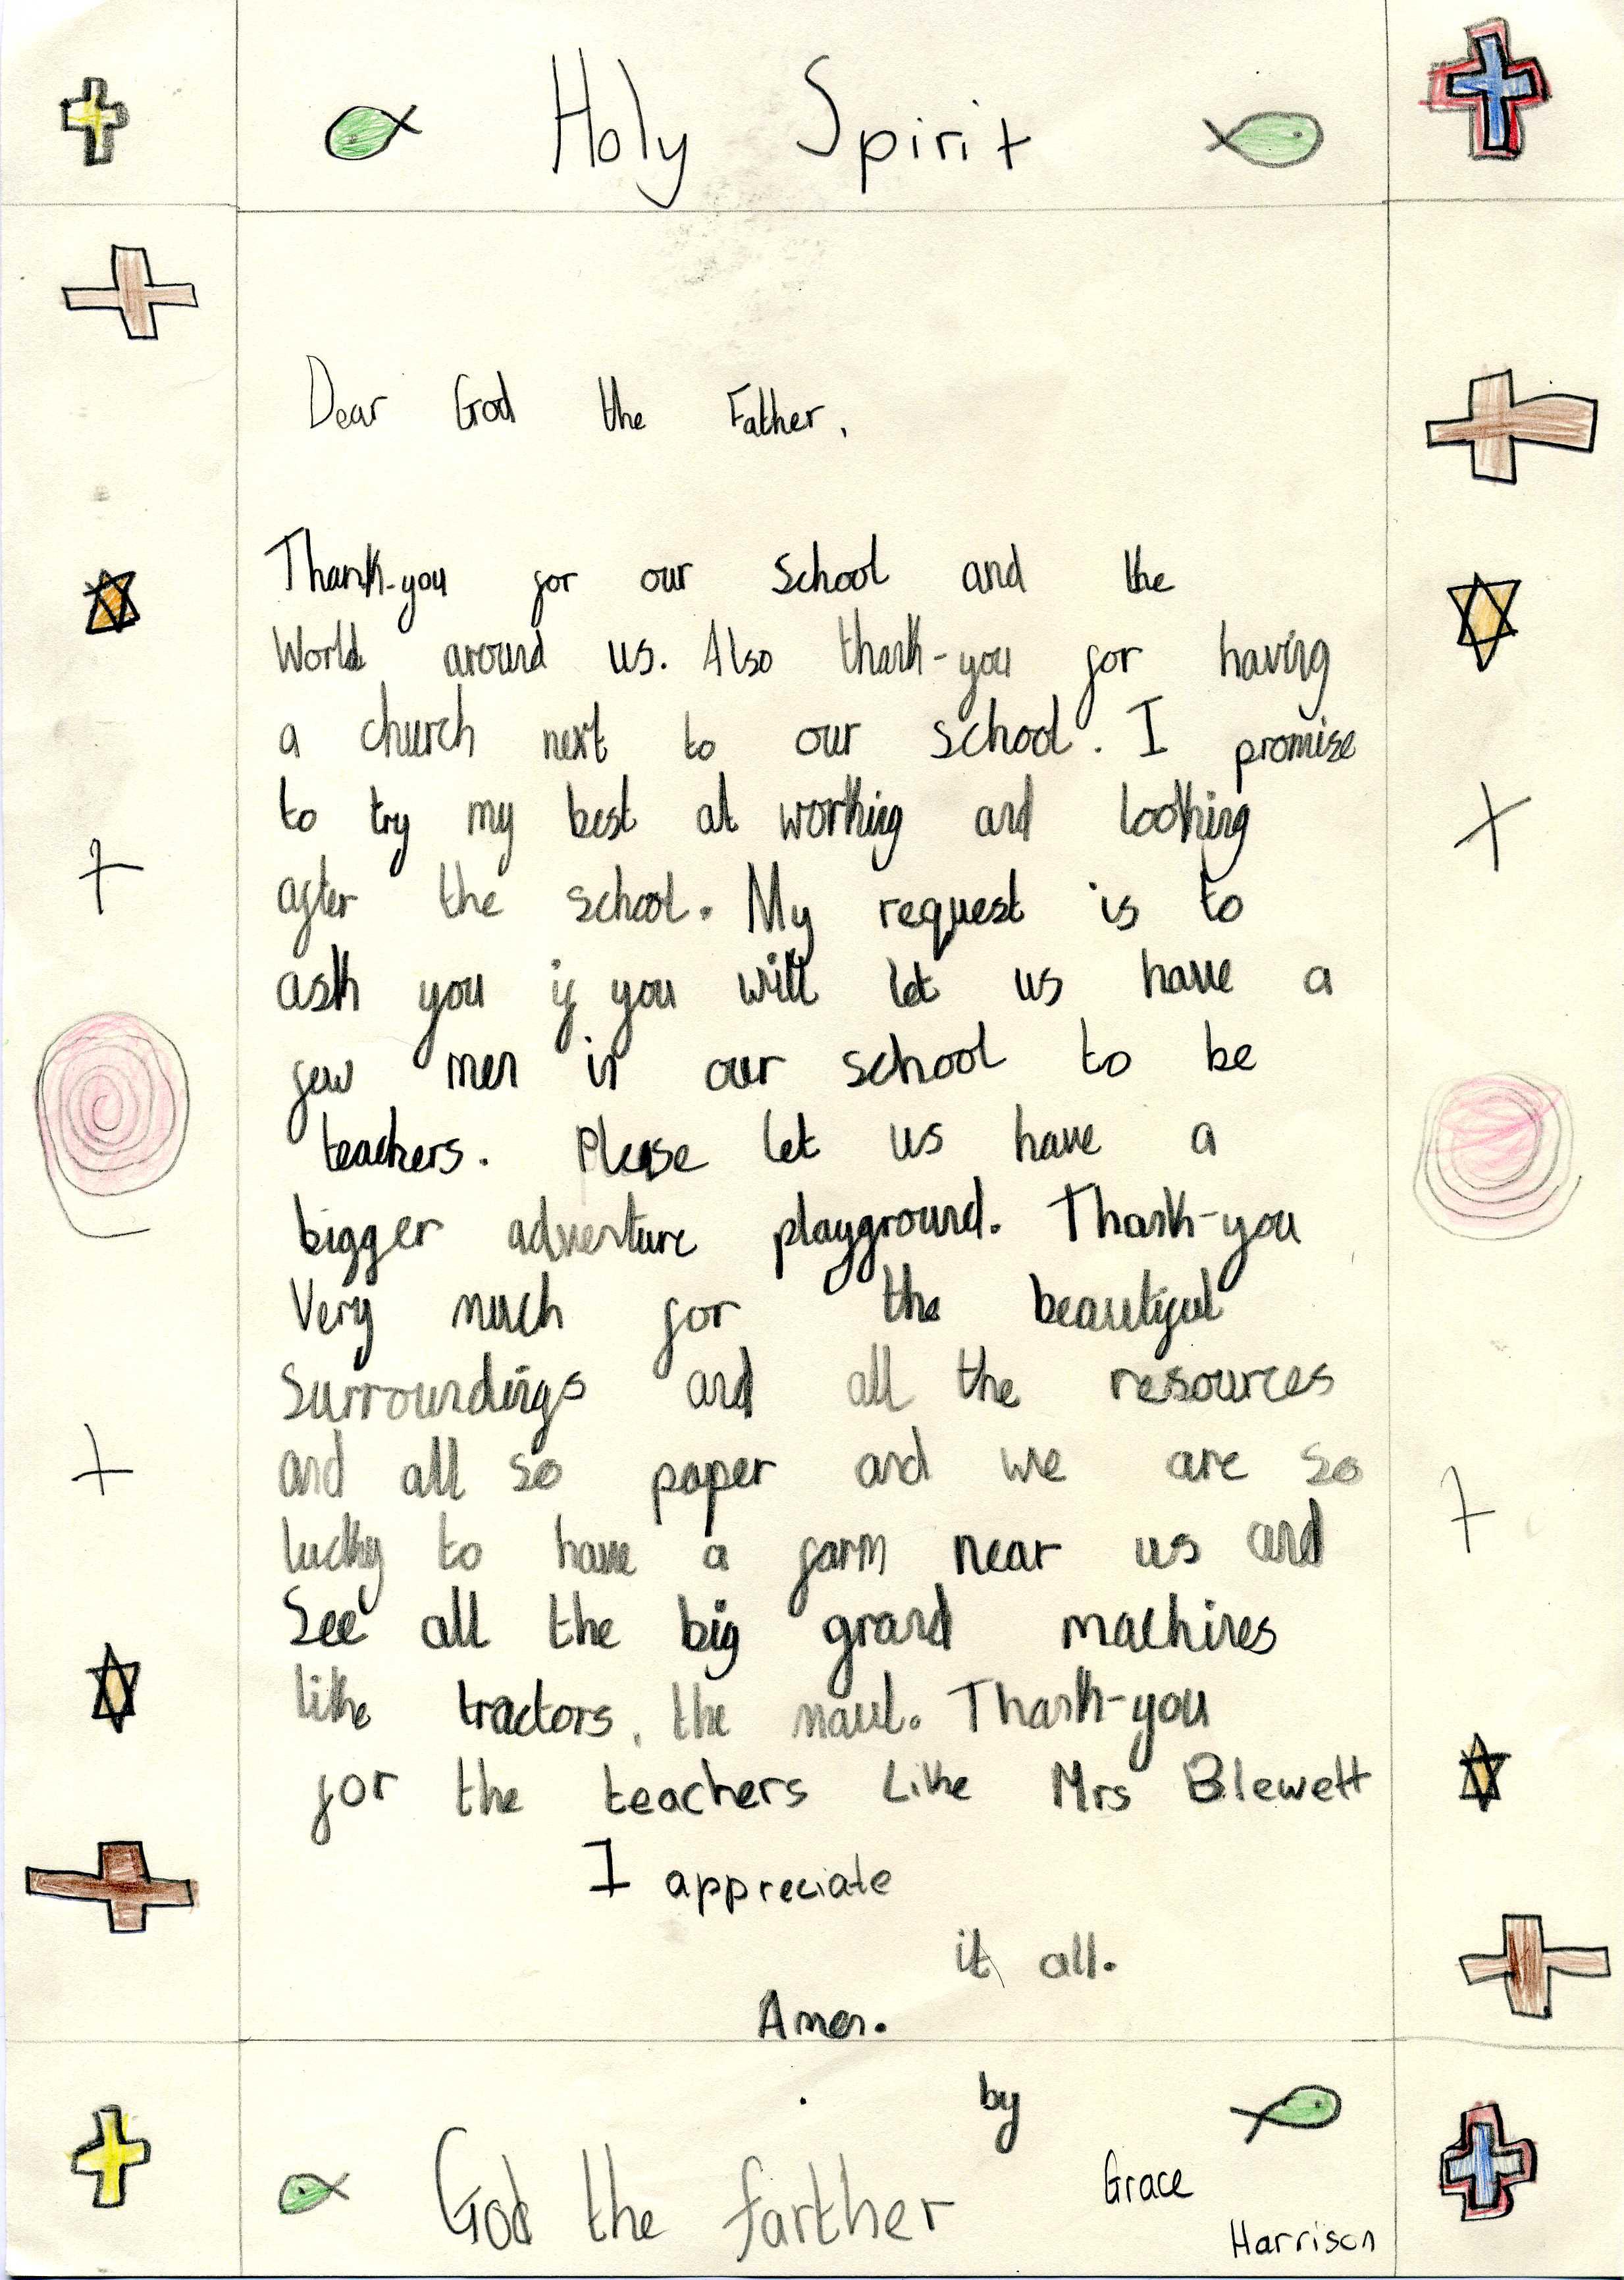 Holy Spirit
Dear God the Father,
Thank-you for our School and the
World around us. Also thank-you for having
a church next to our school. I promise
to try my best at working and looking
after the school. My request is to
ask you if you will let us have a
few men in our school to be
teachers. Please let us have a
bigger adventure playground. Thank-you
Very much for the beautiful
Surroundings and all the resources
and all so paper and we are so
lucky to have a farm near us and
See all the big grand machines
like tractors, the maul. Thank-you
for the teachers Like Mrs Blewett
I appreciate
it all.
Amen.
by
God the farther
Grace
Harrison